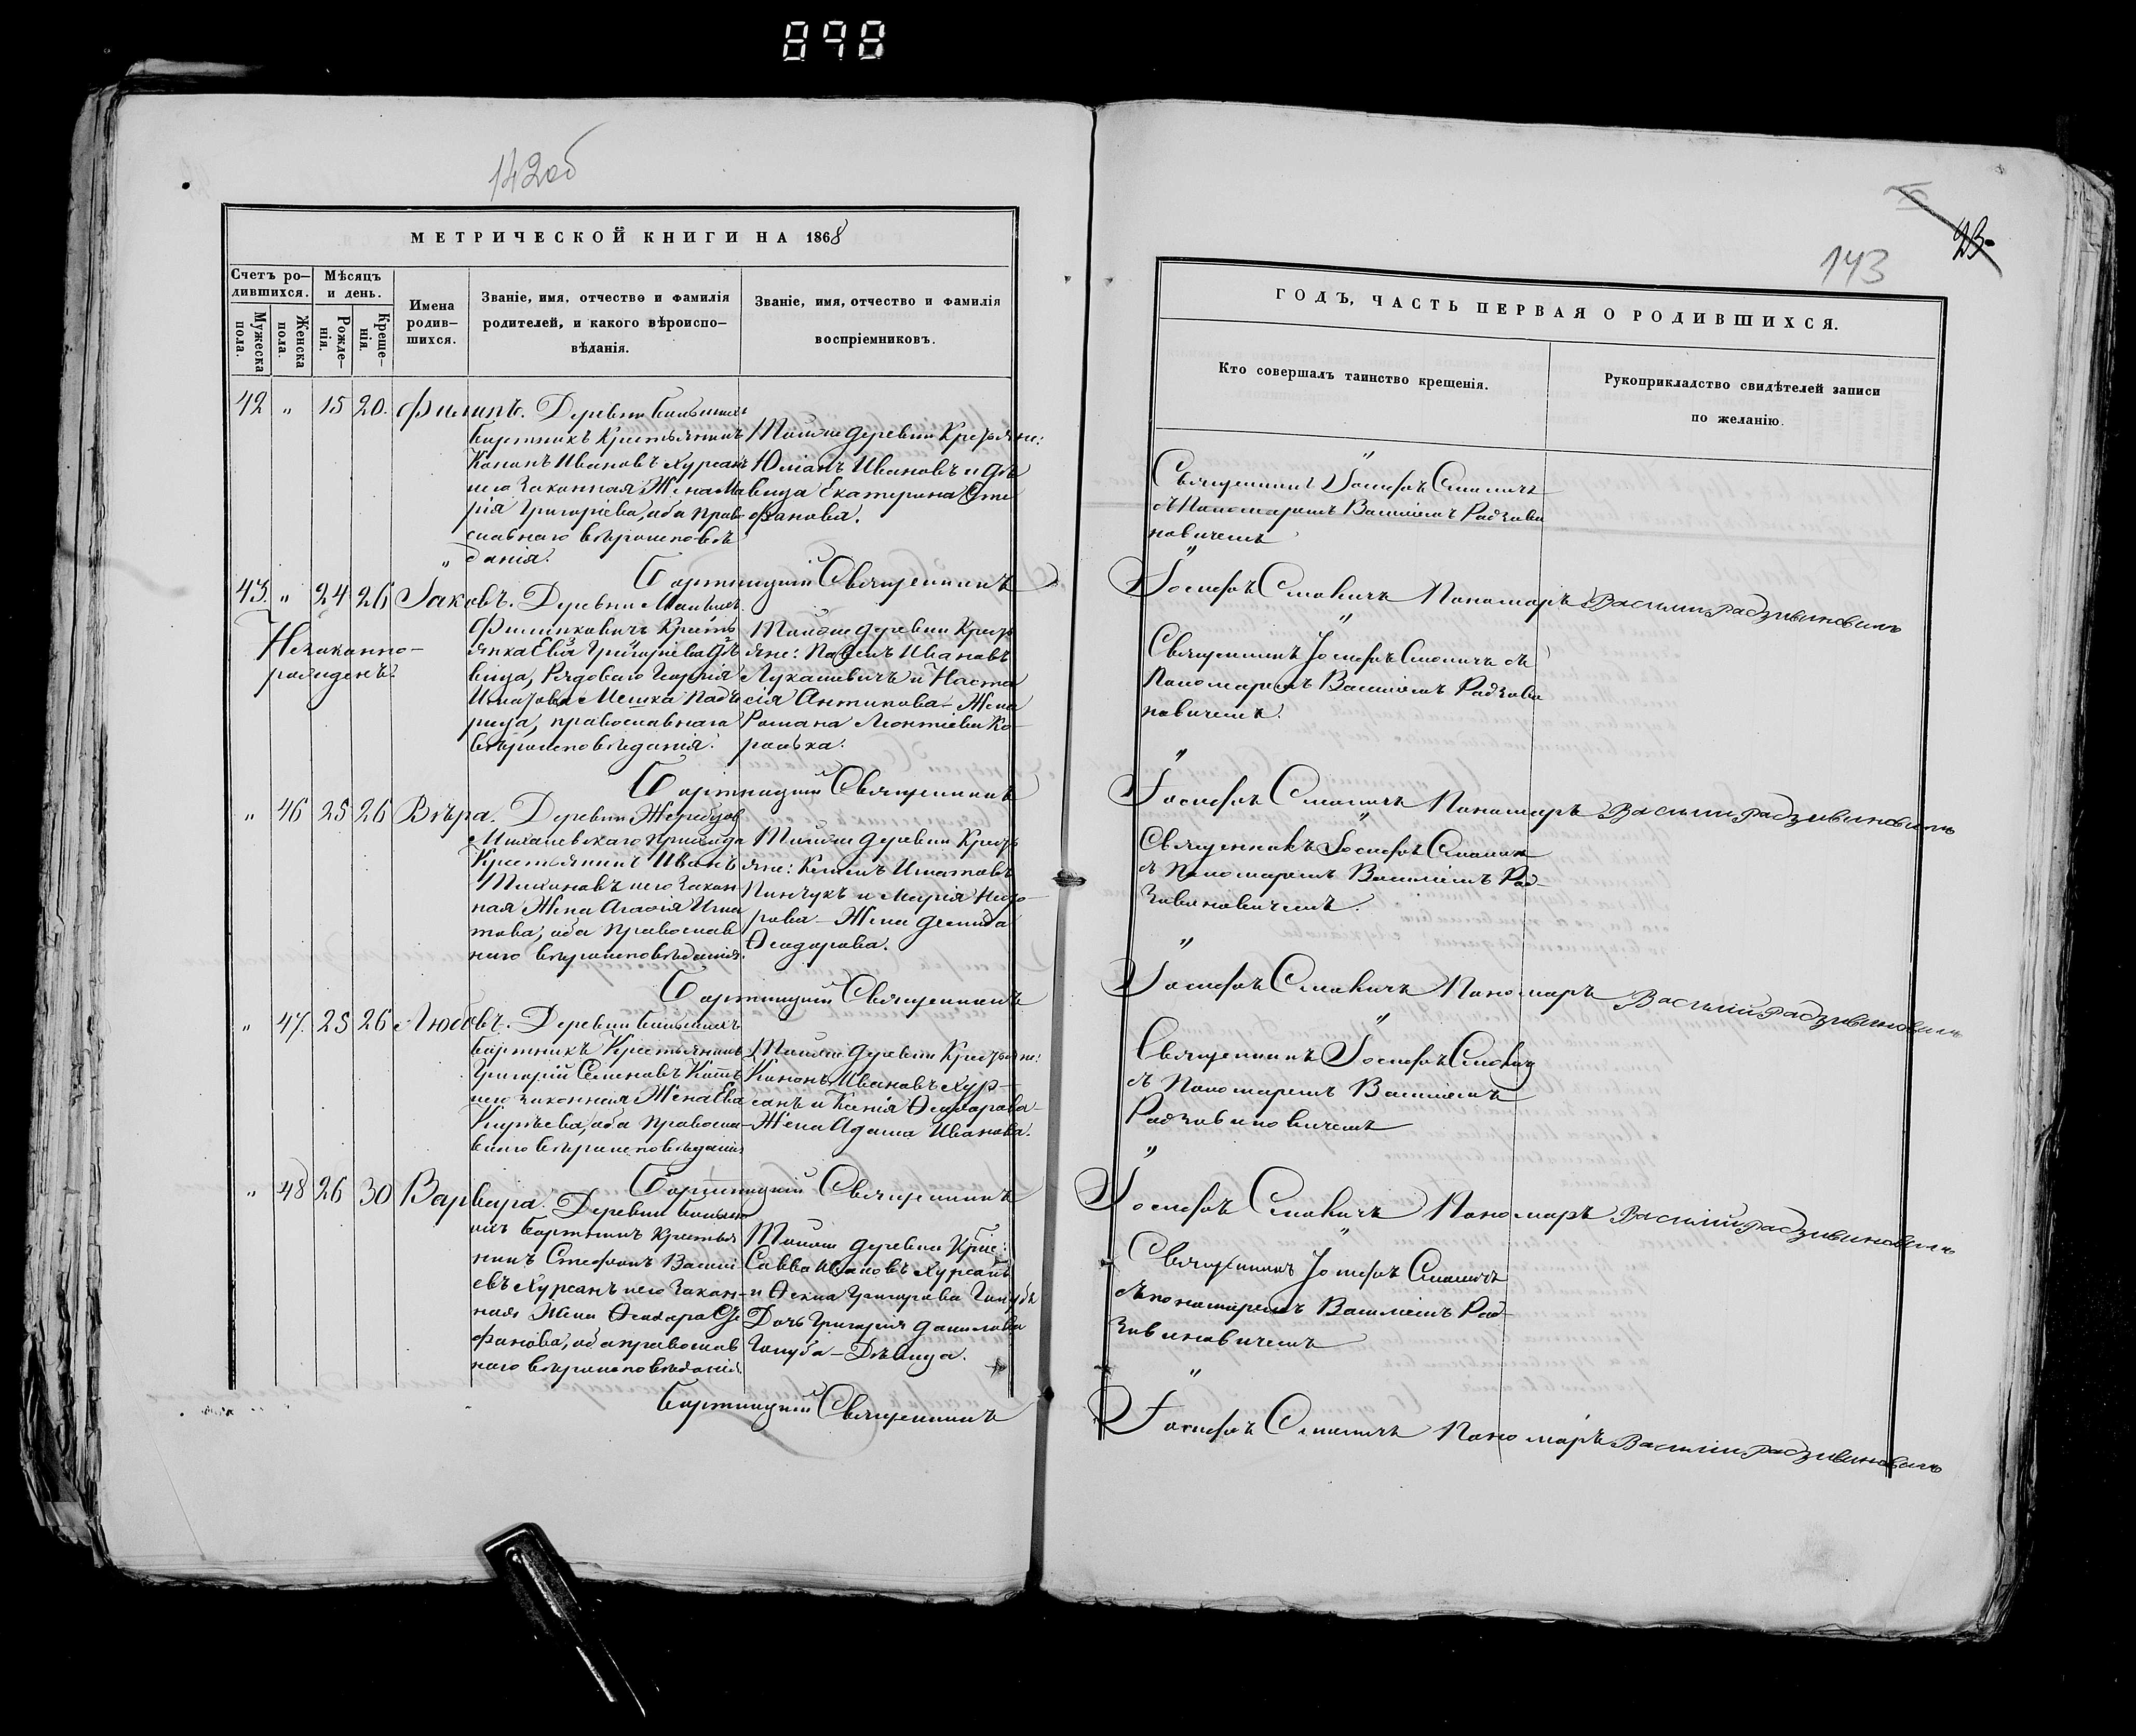 898
142об
МЕТРИЧЕСКОЙ КНИГИ НА 1868
Счетъ ро-
дившихся.
Мѣсяцъ
и день.
Мужеска
пола.
Женска
пола.
Рожде-
нія.
Креще-
нія.
Имена
родив-
шихся.
Званіе, имя, отчество и фамилія
родителей, и какого вѣроиспо-
вѣданія.
Званіе, имя, отчество и фамилія
воспріемниковъ.
42 " 15 20. Филипъ. Деревни
Крестьянинъ
Кононъ Ивановъ Хурсанъ
его законная Жена Ма
рія Григоріева, оба прав
славнаго вѣроисповѣ
данія.
Тойже деревни Крестьяне:
Юліанъ Ивановъ и дѣ
вица Екатерина Сте
фанова.
Священникъ
43 " 24 26 Іаковъ. Деревни
Незаконно-
рожденъ.
Филипковичъ Кресть
янка Евa Григоріева дѣ
вица, Рядоваго
православнаго
вѣроисповѣданія.
Тойже деревни Крестья
яне: Павелъ Ивановъ
Лукашевичъ и Наста
сія Антипова Жена
Романа Леонтіева Ко-
ролька.
Священникъ
" 46 25 26 Вѣра. Деревни
Михалевскаго прихода
Крестьянинъ Иванъ
его закон
ная Жена Агафія Игна
това, оба православ
наго вѣроисповѣданія.
Тойже деревни Крестья
яне: Игнатовъ
Пинчукъ и Марія
Жена Демида
Ѳеодорова.
Священникъ
" 47. 25 26 Любовь. Деревни
Крестьянинъ
Григорій Семеновъ
его законная Жена Ева
оба православ-
наго вѣроисповѣданія
Тойже деревни Крестьяне:
Кононъ Ивановъ Хур-
санъ и Ксенія Ѳеодорова
Жена Адама Иванова.
Священникъ
" 48 26 30 Варвара. Деревни
Крестья
нинъ Стефанъ Васил
евъ Хурсанъ его закон-
ная Жена Ѳеодора Сте
фанова, оба православ
наго вѣроисповѣданія.
Тойже деревни Крес:
Савва Ивановъ Хурсанъ
и Ѳекла Григорьева Голубъ
Дочь Григорія Данилова
Голуба - Дѣвица.
Священникъ
143
23
ГОДЪ, ЧАСТЬ ПЕРВАЯ О РОДИВШИХСЯ.
Кто совершалъ таинство крещенія.
Рукоприкладство свидѣтелей записи
по желанію.
Священникъ Іосифъ Смоличъ
съ Пономаремъ Василіемъ Радзиви
новичемъ
Іосифъ Смоличъ Пономаръ Василий Радзивиновичъ
Священникъ Іосифъ Смоличъ съ
Пономаремъ Василіемъ Радзиви
новичемъ.
Іосифъ Смоличъ Пономаръ Василий Радзивиновичъ
Священникъ Іосифъ Смоличъ
съ Пономаремъ Василіемъ Рад-
зивиновичемъ.
Іосифъ Смоличъ Пономаръ Василий Радзивиновичъ
Священникъ Іосифъ Смоличъ
съ Пономаремъ Василіемъ
Радзивиновичемъ
Іосифъ Смоличъ Пономаръ Василий Радзивиновичъ
Священникъ Іосифъ Смоличъ
съ пономаремъ Василіемъ Рад-
зивиновичемъ
Іосифъ Смоличъ Пономаръ Василий Радзивиновичъ